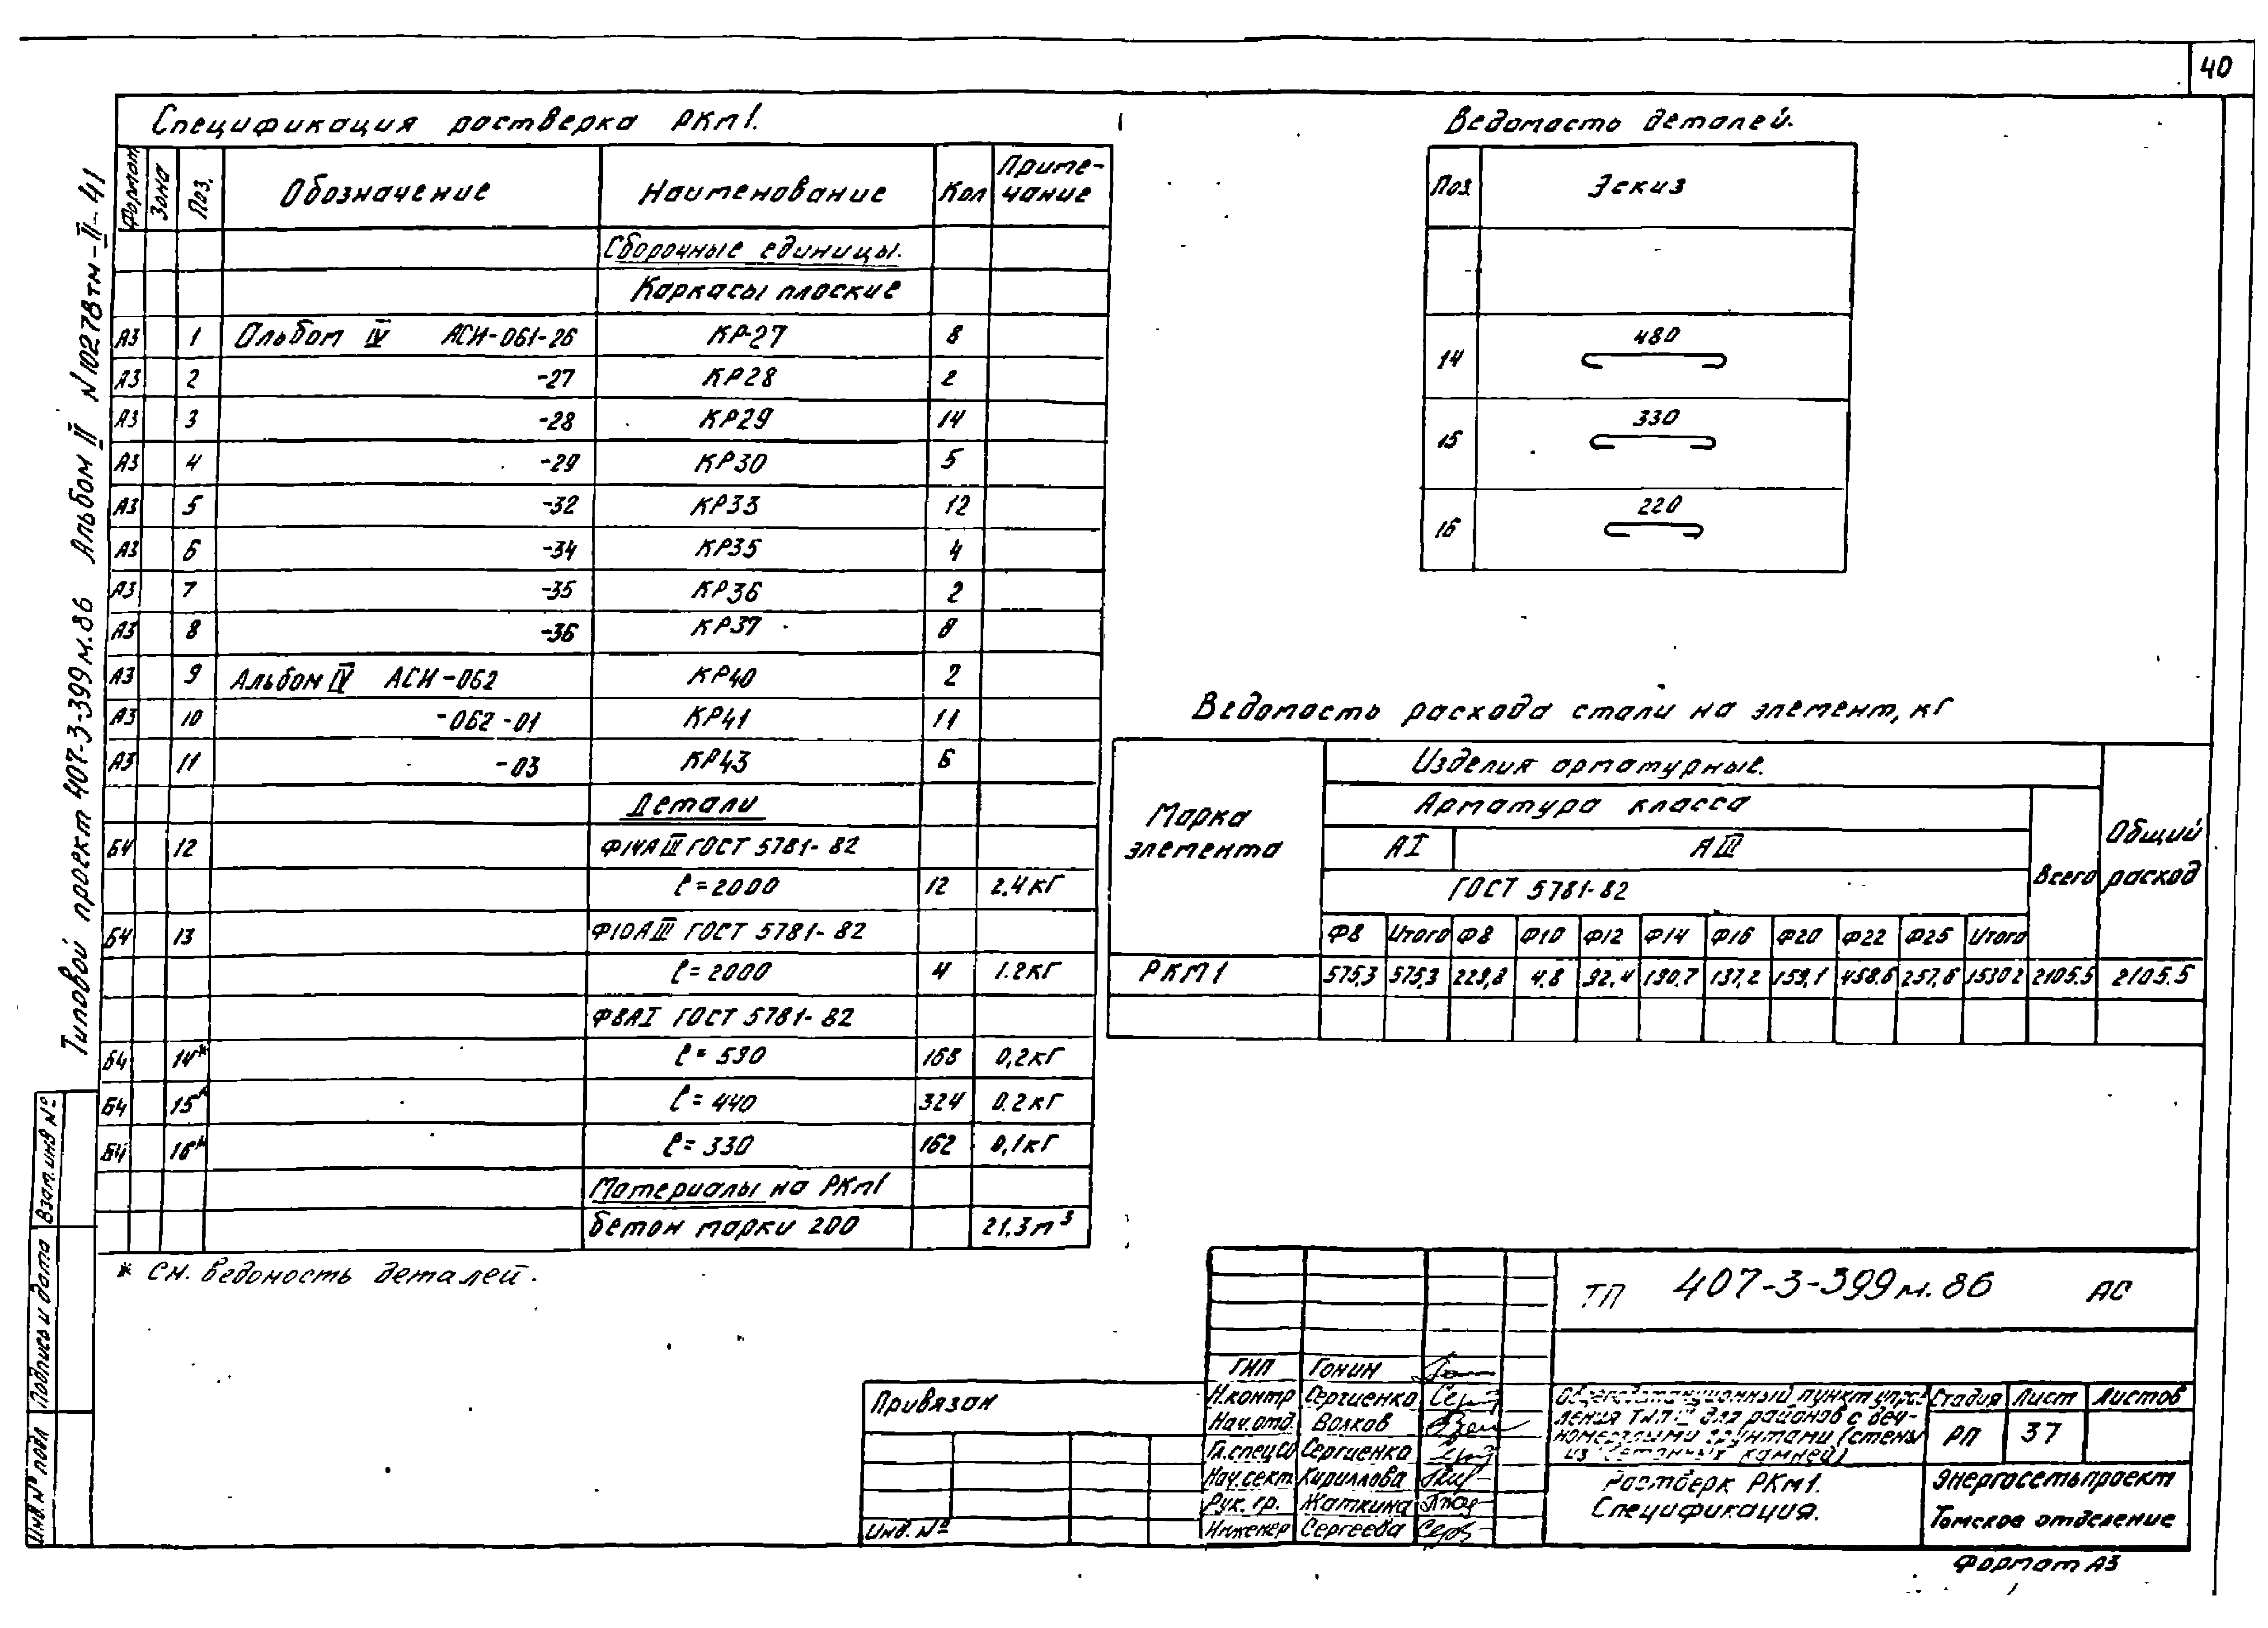 40
Типовой проект 407-3-399м.86 Альбом II N10278тм-II-41
Спецификация ростверка РКм1.
Формат Зона Поз. Обозначение Наименование Кол Приме-
чание
Сборочные единицы.
Каркасы плоские
А3 1 Альбом IV АСИ-061-26 КР-27 8
А3 2 -27 КР28 2
А3 3 -28 КР29 14
А3 4 -29 КР30 5
А3 5 -32 КР33 12
А3 6 -34 КР35 4
А3 7 -35 КР36 2
А3 8 -36 КР37 8
А3 9 Альбом IV АСИ-062 КР40 2
А3 10 -062-01 КР41 11
А3 11 -03 КР43 6
Детали
БЧ 12 Ф14АIII ГОСТ 5781-82
ℓ=2000 12 2,4кг
БЧ 13 Ф10АIII ГОСТ 5781-82
ℓ=2000 4 1.2кг
Ф8АI ГОСТ 5781-82
БЧ 14* ℓ=590 168 0,2кг
БЧ 15* ℓ=440 324 0.2кг
БЧ 16* ℓ=330 162 0,1кг
Материалы на РКм1
бетон марки 200 21.3м³
* см. ведомость деталей.
Ведомость деталей.
Поз Эскиз
14 480
15 330
16 220
Ведомость расхода стали на элемент, кг
Марка
элемента
Изделия арматурные.
Арматура класса
АI АIII
ГОСТ 5781-82
Всего
Общий
расход
Ф8 Итого Ф8 Ф10 Ф12 Ф14 Ф16 Ф20 Ф22 Ф25 Итого
РКМ1 575,3 575,3 229,8 4.8 92.4 190.7 137,2 159,1 458.6 257,6 1530.2 2105.5 2105.5
Инв.№ подл Подпись и дата Взам.инв №
Привязан
Инв. №
ГИП Гонин
Н.контр Сергиенко
Нач.отд Волков
Гл.спец Сергиенко
Нач.сект Кириллова
Рук. гр. Жаткина
Инженер Сергеева
ТП 407-3-399м.86 АС
Общеподстанционный пункт управ-
ления для районов с веч-
номерзлыми грунтами (стены
из бетонных камней)
Стадия Лист Листов
РП 37
Ростверк РКм1.
Спецификация.
Энергосетьпроект
Томское отделение
Формат А3